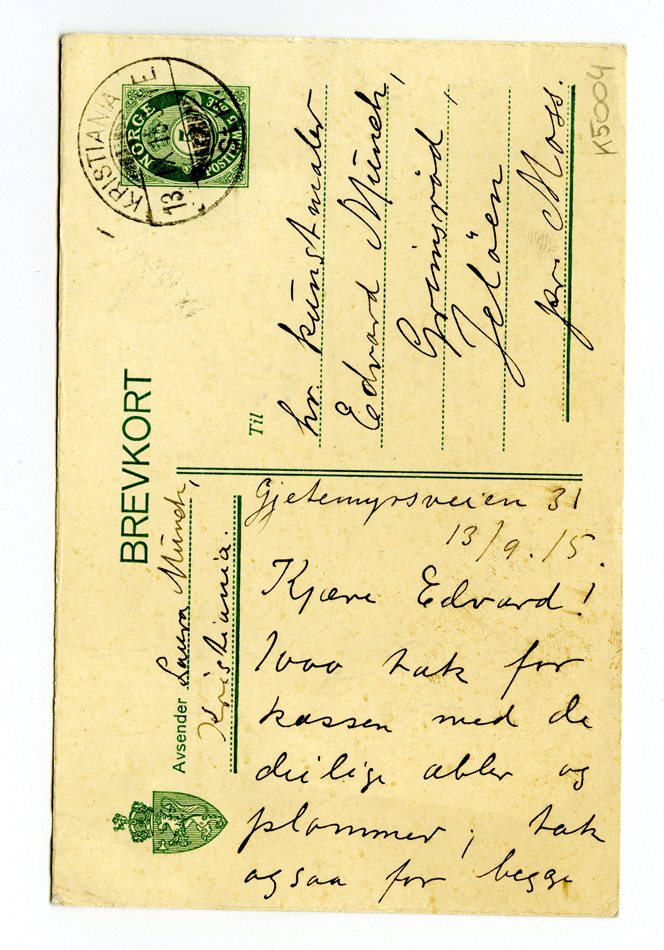 BREVKORT
NORGE
POSTFRIM. 5 ØRE
KRISTIANIA
13
Avsender Laura Münch,
Kristiania.
Til
hr kunstmaler
Edvard Münch,
Grimsrød,
Jeløen
pr. Moss.
K5004
Gjetemyrsveien 31
13/9. 15.
Kjære Edvard!
1000 tak for
kassen med de
deilige æbler og
plommer; tak
ogsaa for begge